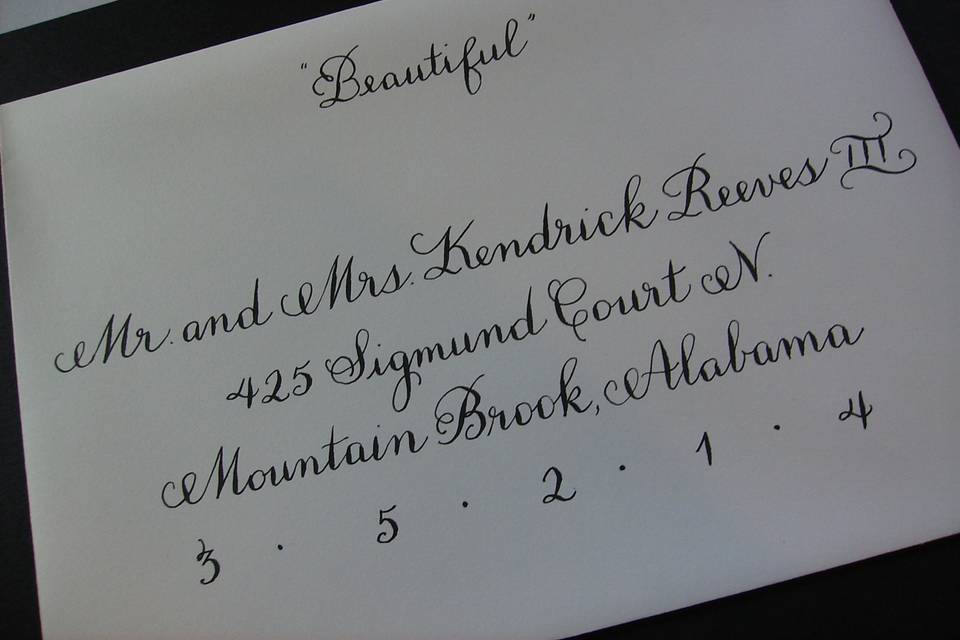 "Beautiful"
Mr. and Mrs. Kendrick Reeves III
425 Sigmund Court N.
Mountain Brook, Alabama
3 · 5 · 2 · 1 · 4